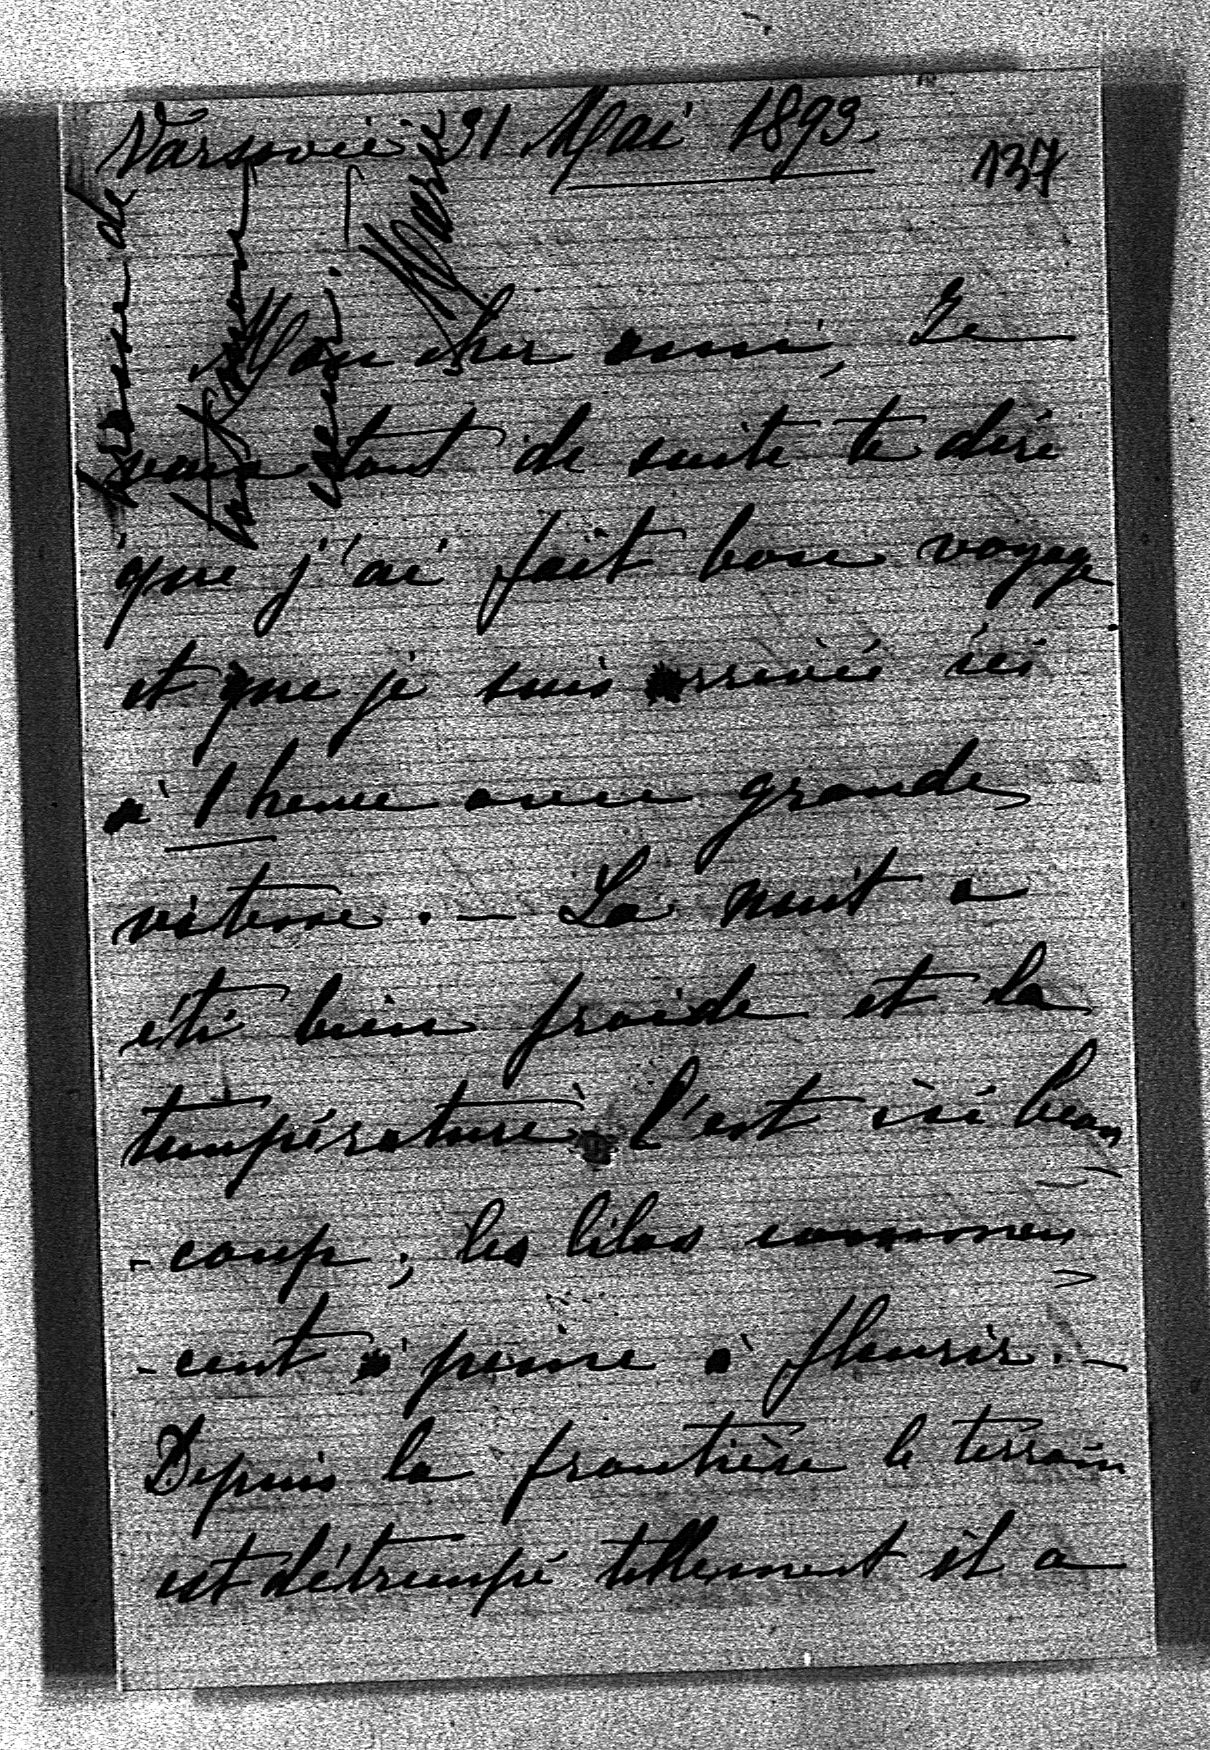 Varsovie 31 Mai 1893
137
Mon cher ami, Je
veux tout de suite te dire
que j'ai fait bon voyage
et que je suis arrivée ici
à 1 heure avec grande
vitesse. — La nuit a
été bien froide et la
température l'est ici beau
-coup; les lilas commen
-cent à peine à fleurir. —
Depuis la frontière le terrain
est détrempé tellement il a